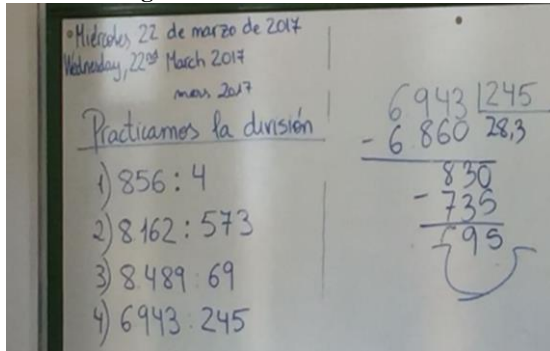 Miércoles 22 de marzo de 2017
Wednesday, 22nd March 2017
mars 2017
Practicamos la división
1) 856 : 4
2) 8.162 : 573
3) 8.489 : 69
4) 6943 : 245
6943 245
- 6.860 28,3
830
- 735
95